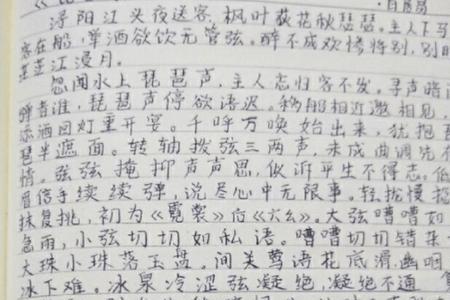 白居易
浔阳江头夜送客,枫叶荻花秋瑟瑟。主人下马
客在船,举酒欲饮无管弦。醉不成欢惨将别,别时
茫茫江浸月。
忽闻水上琵琶声,主人忘归客不发。寻声暗问
弹者谁,琵琶声停欲语迟。移船相近邀相见,
添酒回灯重开宴。千呼万唤始出来,犹抱琵
琶半遮面。转轴拨弦三两声,未成曲调先有
情。弦弦掩抑声声思,似诉平生不得志。低
眉信手续续弹,说尽心中无限事。轻拢慢捻
抹复挑,初为《霓裳》后《六幺》。大弦嘈嘈如
急雨,小弦切切如私语。嘈嘈切切错杂
大珠小珠落玉盘。间关莺语花底滑,幽咽
冰下难。冰泉冷涩弦凝绝,凝绝不通